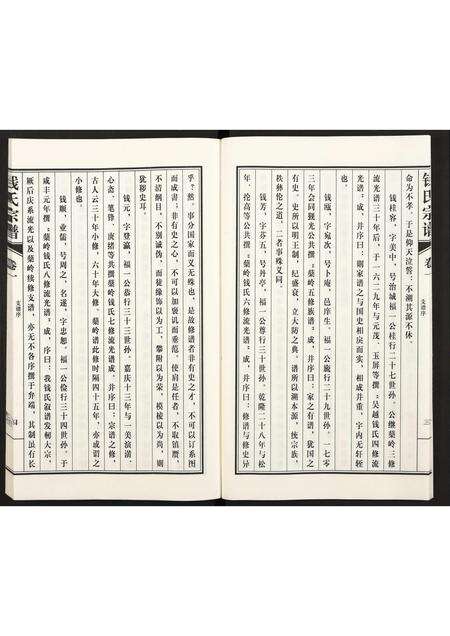 钱氏宗谱
卷一
支谱序
命为不孝，于是仰天泣誓：不溯其源不休。
钱桂容，字美中，号治城，福一公桂行二十七世孙。公继蔡岭三修
流光谱二十年后，于一六二九年与元茂、玉屏等撰《吴越钱氏四修流
光谱》成，并序曰：则家谱之与国史相庋而实，相成并重，字内无轩轾
也。
钱瓯，字宛次，号卜庵，邑庠生。福一公施行二十九世孙。一七零
三年会同强光公共撰《蔡岭五修族谱》成，并序曰：家之有谱，犹国之
有史。史所以明王制，纪盛衰，立大防之典。谱所以溯本源，统宗族，
秩彝伦之道。二者事殊义同。
钱芳，字芬五，号丹亭，福一公尊行三十世孙。乾隆二十八年与松
年、抡高等公共撰《蔡岭钱氏六修流光谱》成，并序曰：修谱与修史异
乎？然。事分国家而义无殊也。是故修谱者非有史之才，不可以订系图
而成书；非有史之心，不可以加褒讥而垂范。使肩是任者，不取镇赝，
不清纲目，不别诚伪，而徒操饰以为工，攀附以为荣，模棱以为尚，则
犹秽史耳。
钱元，字登瀛，福一公恭行三十三世孙。嘉庆十三年与一美演满、
心斋、笔锋、庚绪等共撰蔡岭钱氏七修流光谱》成。并序曰：宗谱之修，
古人云三十年小修，六十年大修。蔡岭谱此修时隔四十五年，亦成谓之
钱顺，业儒，号周之，名遂，字忠恕。福一公俭行三十四世孙。于
咸丰元年撰《蔡岭钱氏八修流光谱》成，序曰：我钱氏叙谱发轫大宗，
厥后庆系流光以及蔡岭续修支谱，亦无不各序撰于弁端，其制虽有长
钱氏宗谱
卷一
支谱序